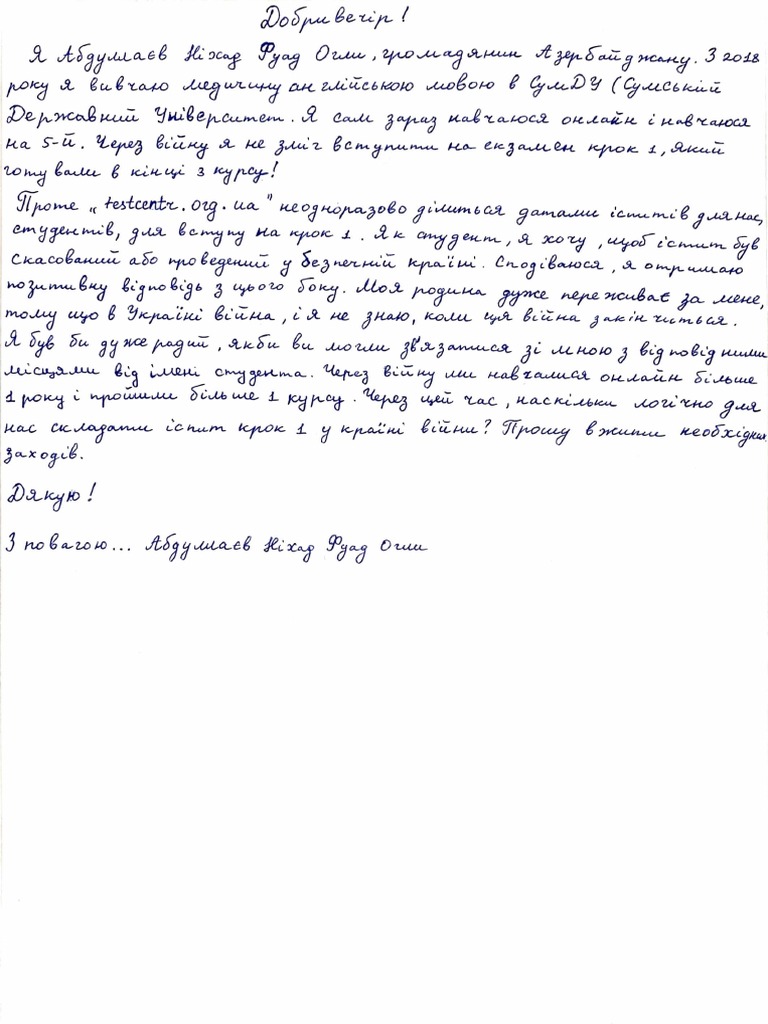 Добрий вечір!
Я Абдуллаєв Ніхад Фуад Огли, громадянин Азербайджану. З 2018
року я вивчаю медичину англійською мовою в СумДУ (Сумський
Державний Університет. Я сам зараз навчаюся онлайн і навчаюся
на 5-й. Через війну я не зміг вступити на екзамен крок 1, який
готували в кінці 3 курсу!
Проте „testcentr.org.ua" неодноразово ділиться датами іспитів для нас,
студентів, для вступу на крок 1. Як студент, я хочу, щоб іспит був
скасований або проведений у безпечній країні. Сподіваюся, я отримаю
позитивну відповідь з цього боку. Моя родина дуже переживає за мене,
тому що в Україні війна, і я не знаю, коли ця війна закінчиться.
Я був би дуже радий, якби ви могли зв'язатися зі мною з відповідними
місцями від імені студента. Через війну ми навчалися онлайн більше
1 року і пройшли більше 1 курсу. Через цей час, наскільки логічно для
нас складати іспит крок 1 у країні війни? Прошу вжити необхідних
заходів.
Дякую!
З повагою... Абдуллаєв Ніхад Фуад Огли